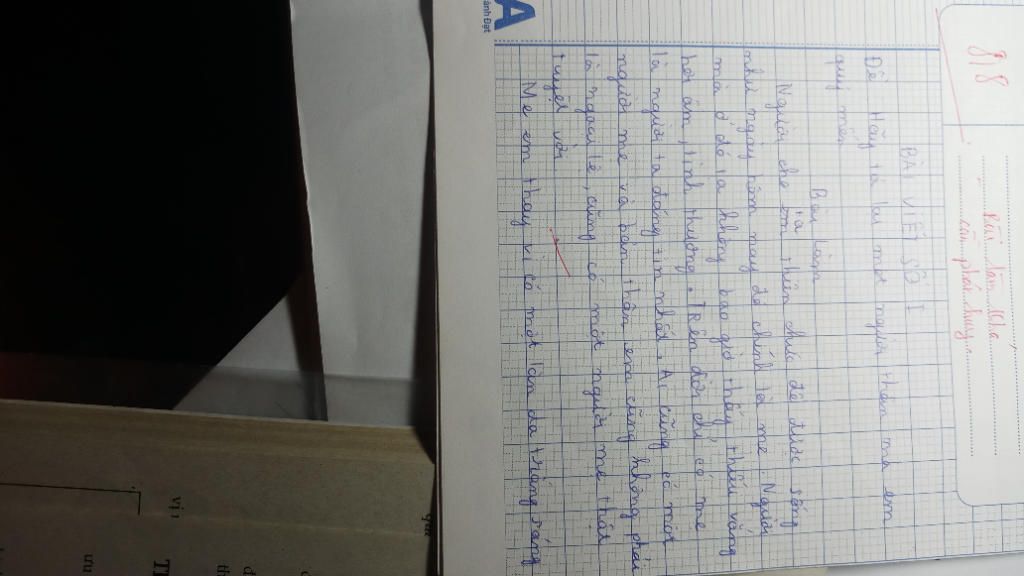 8/8
cần phát huy.
BÀI VIẾT SỐ I
Đề Hãy tả lại một người thân mà em
quý mến
Bài làm
Người cho em thiên chức để được sống
như ngày hôm nay đó chính là mẹ Người
mà ở đó ta không bao giờ thấy thiếu vắng
hơi ấm, tình thương. Trên đời chỉ có mẹ
là người ta đáng tin nhất. Ai cũng có một
người mẹ và bản thân em cũng không phải
là ngoại lệ, cũng có một người mẹ thật
tuyệt vời.
Mẹ em thay vì có một làn da trắng sáng
A
ánh Đạt
vị
ưu